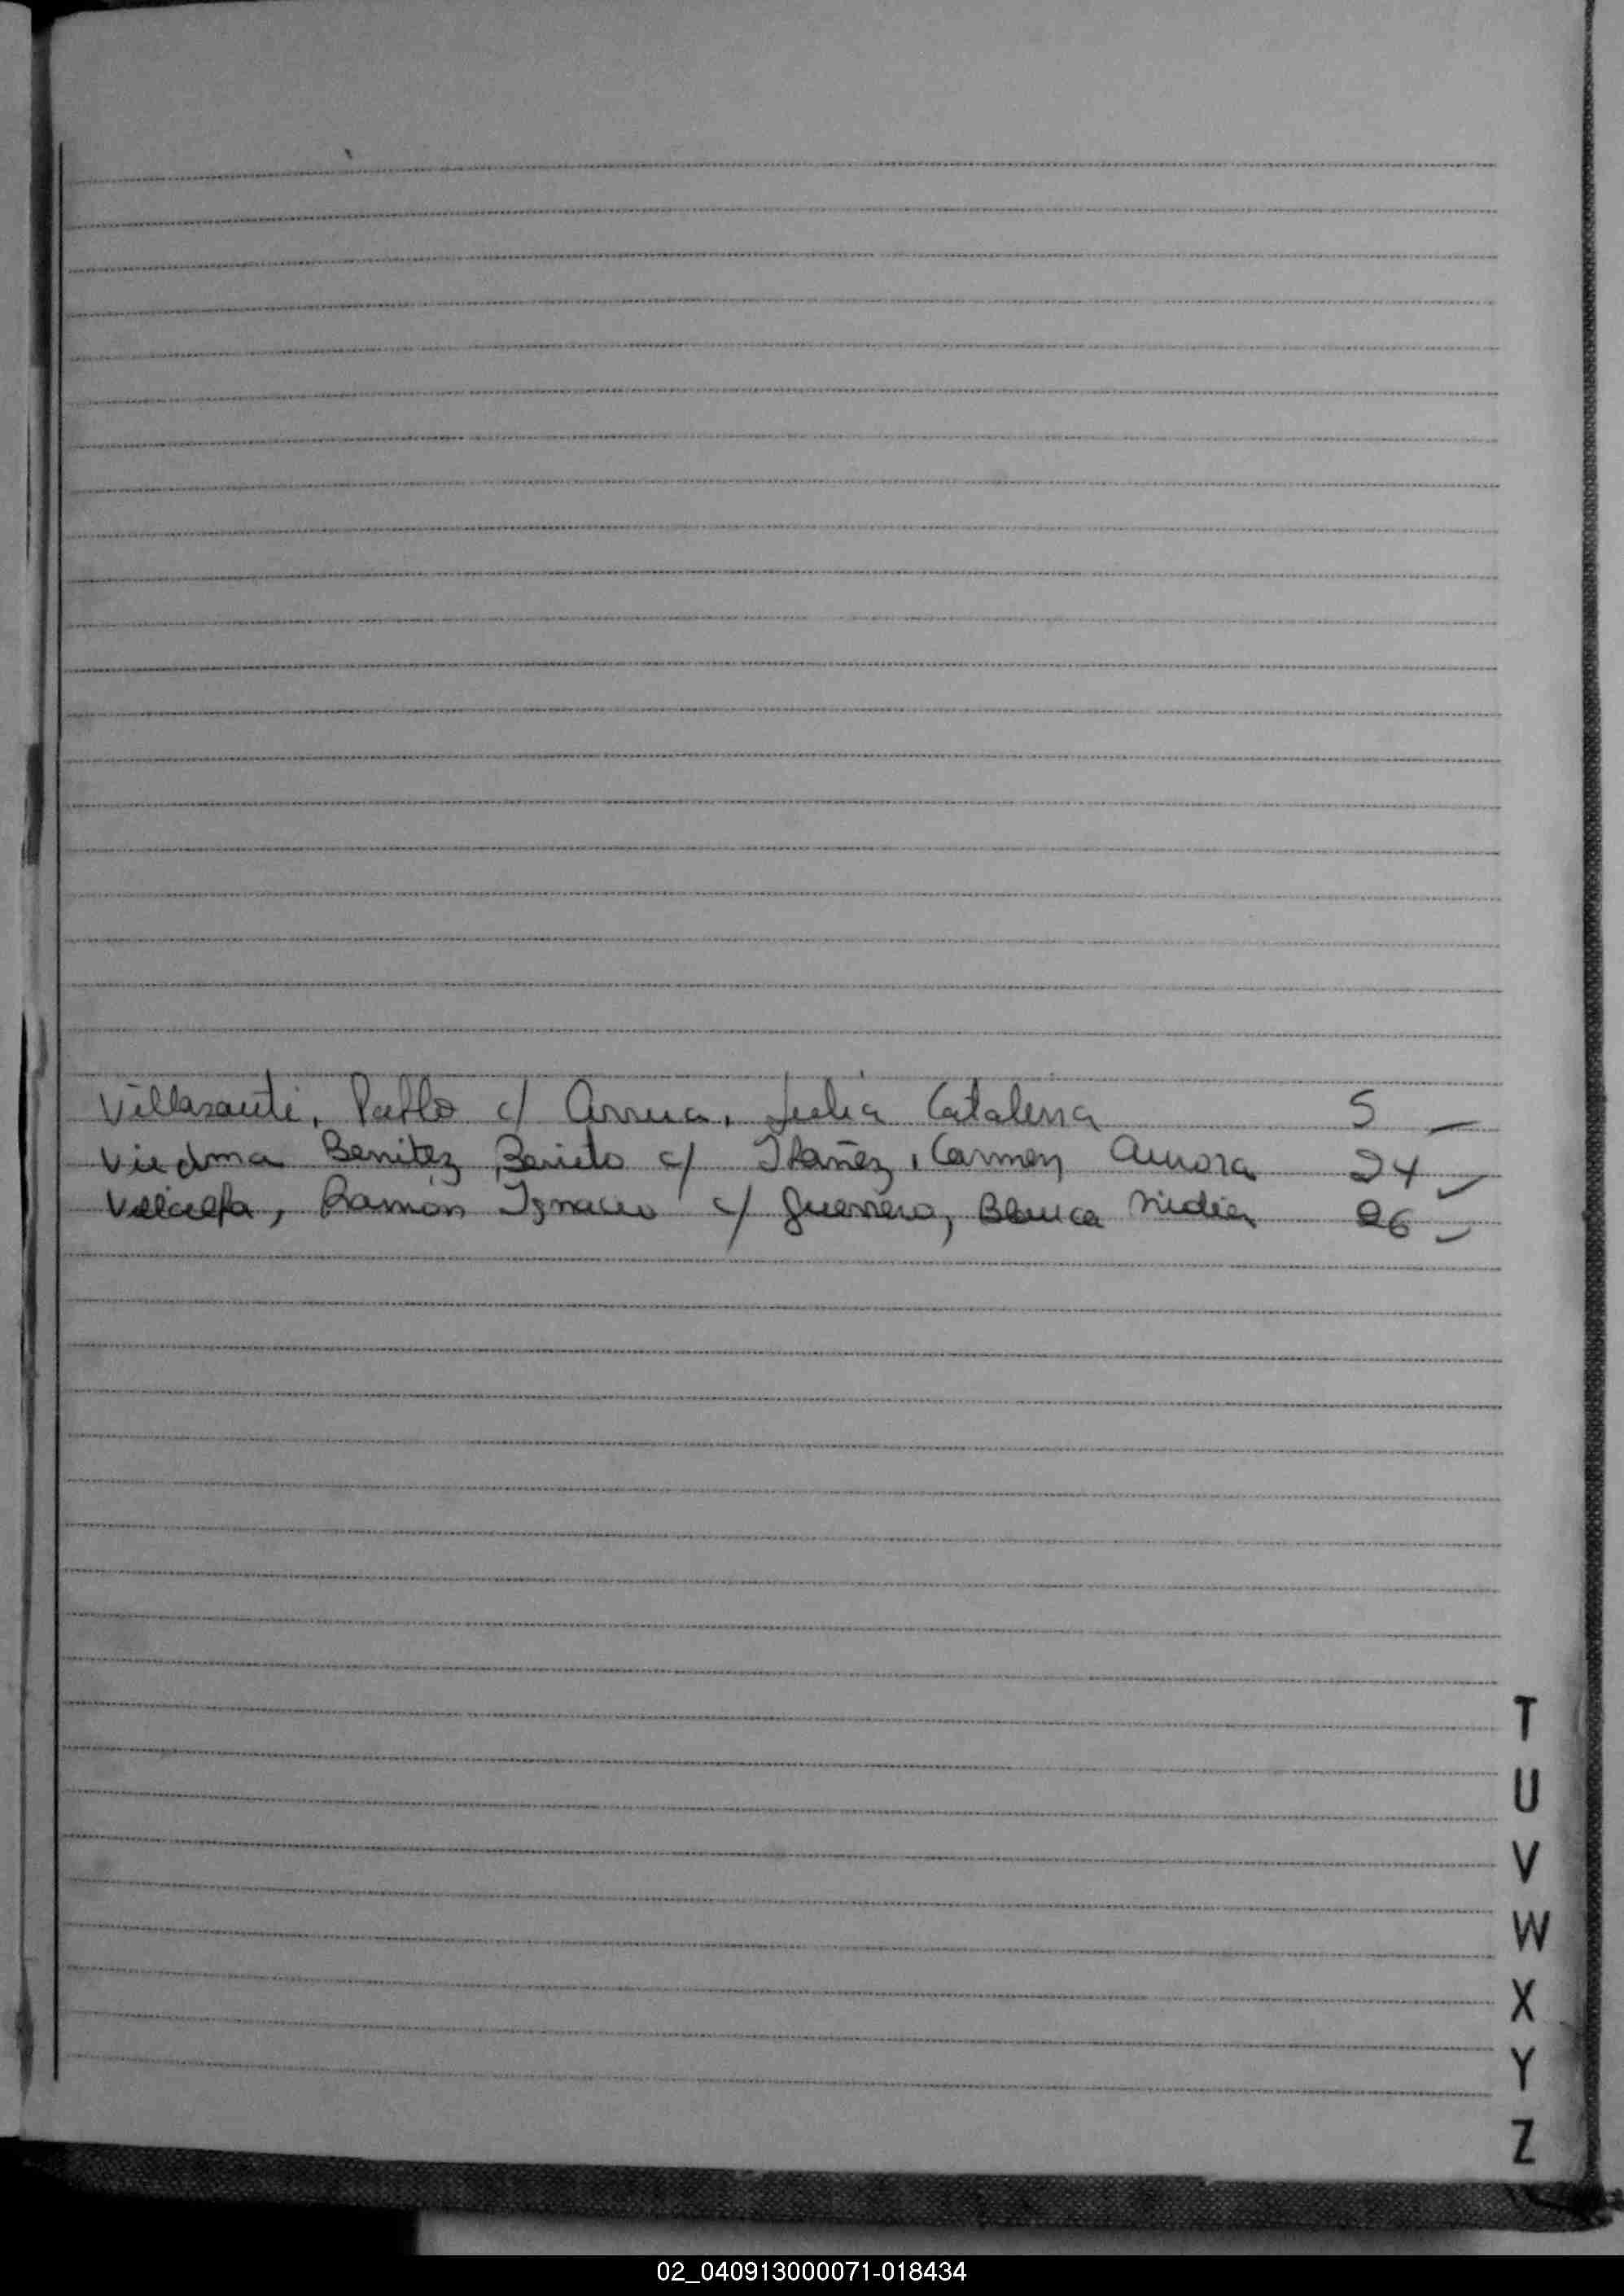 Villasanti, Pablo c/ Arrua, Julia Catalina 5
Viedma Benitez, Benito c/ Ibañez, Carmen Aurora 24
Villalba, Ramón Ignacio c/ Guerrero, Blanca Nidia 26
T
U
V
W
X
Y
Z
02_040913000071-018434